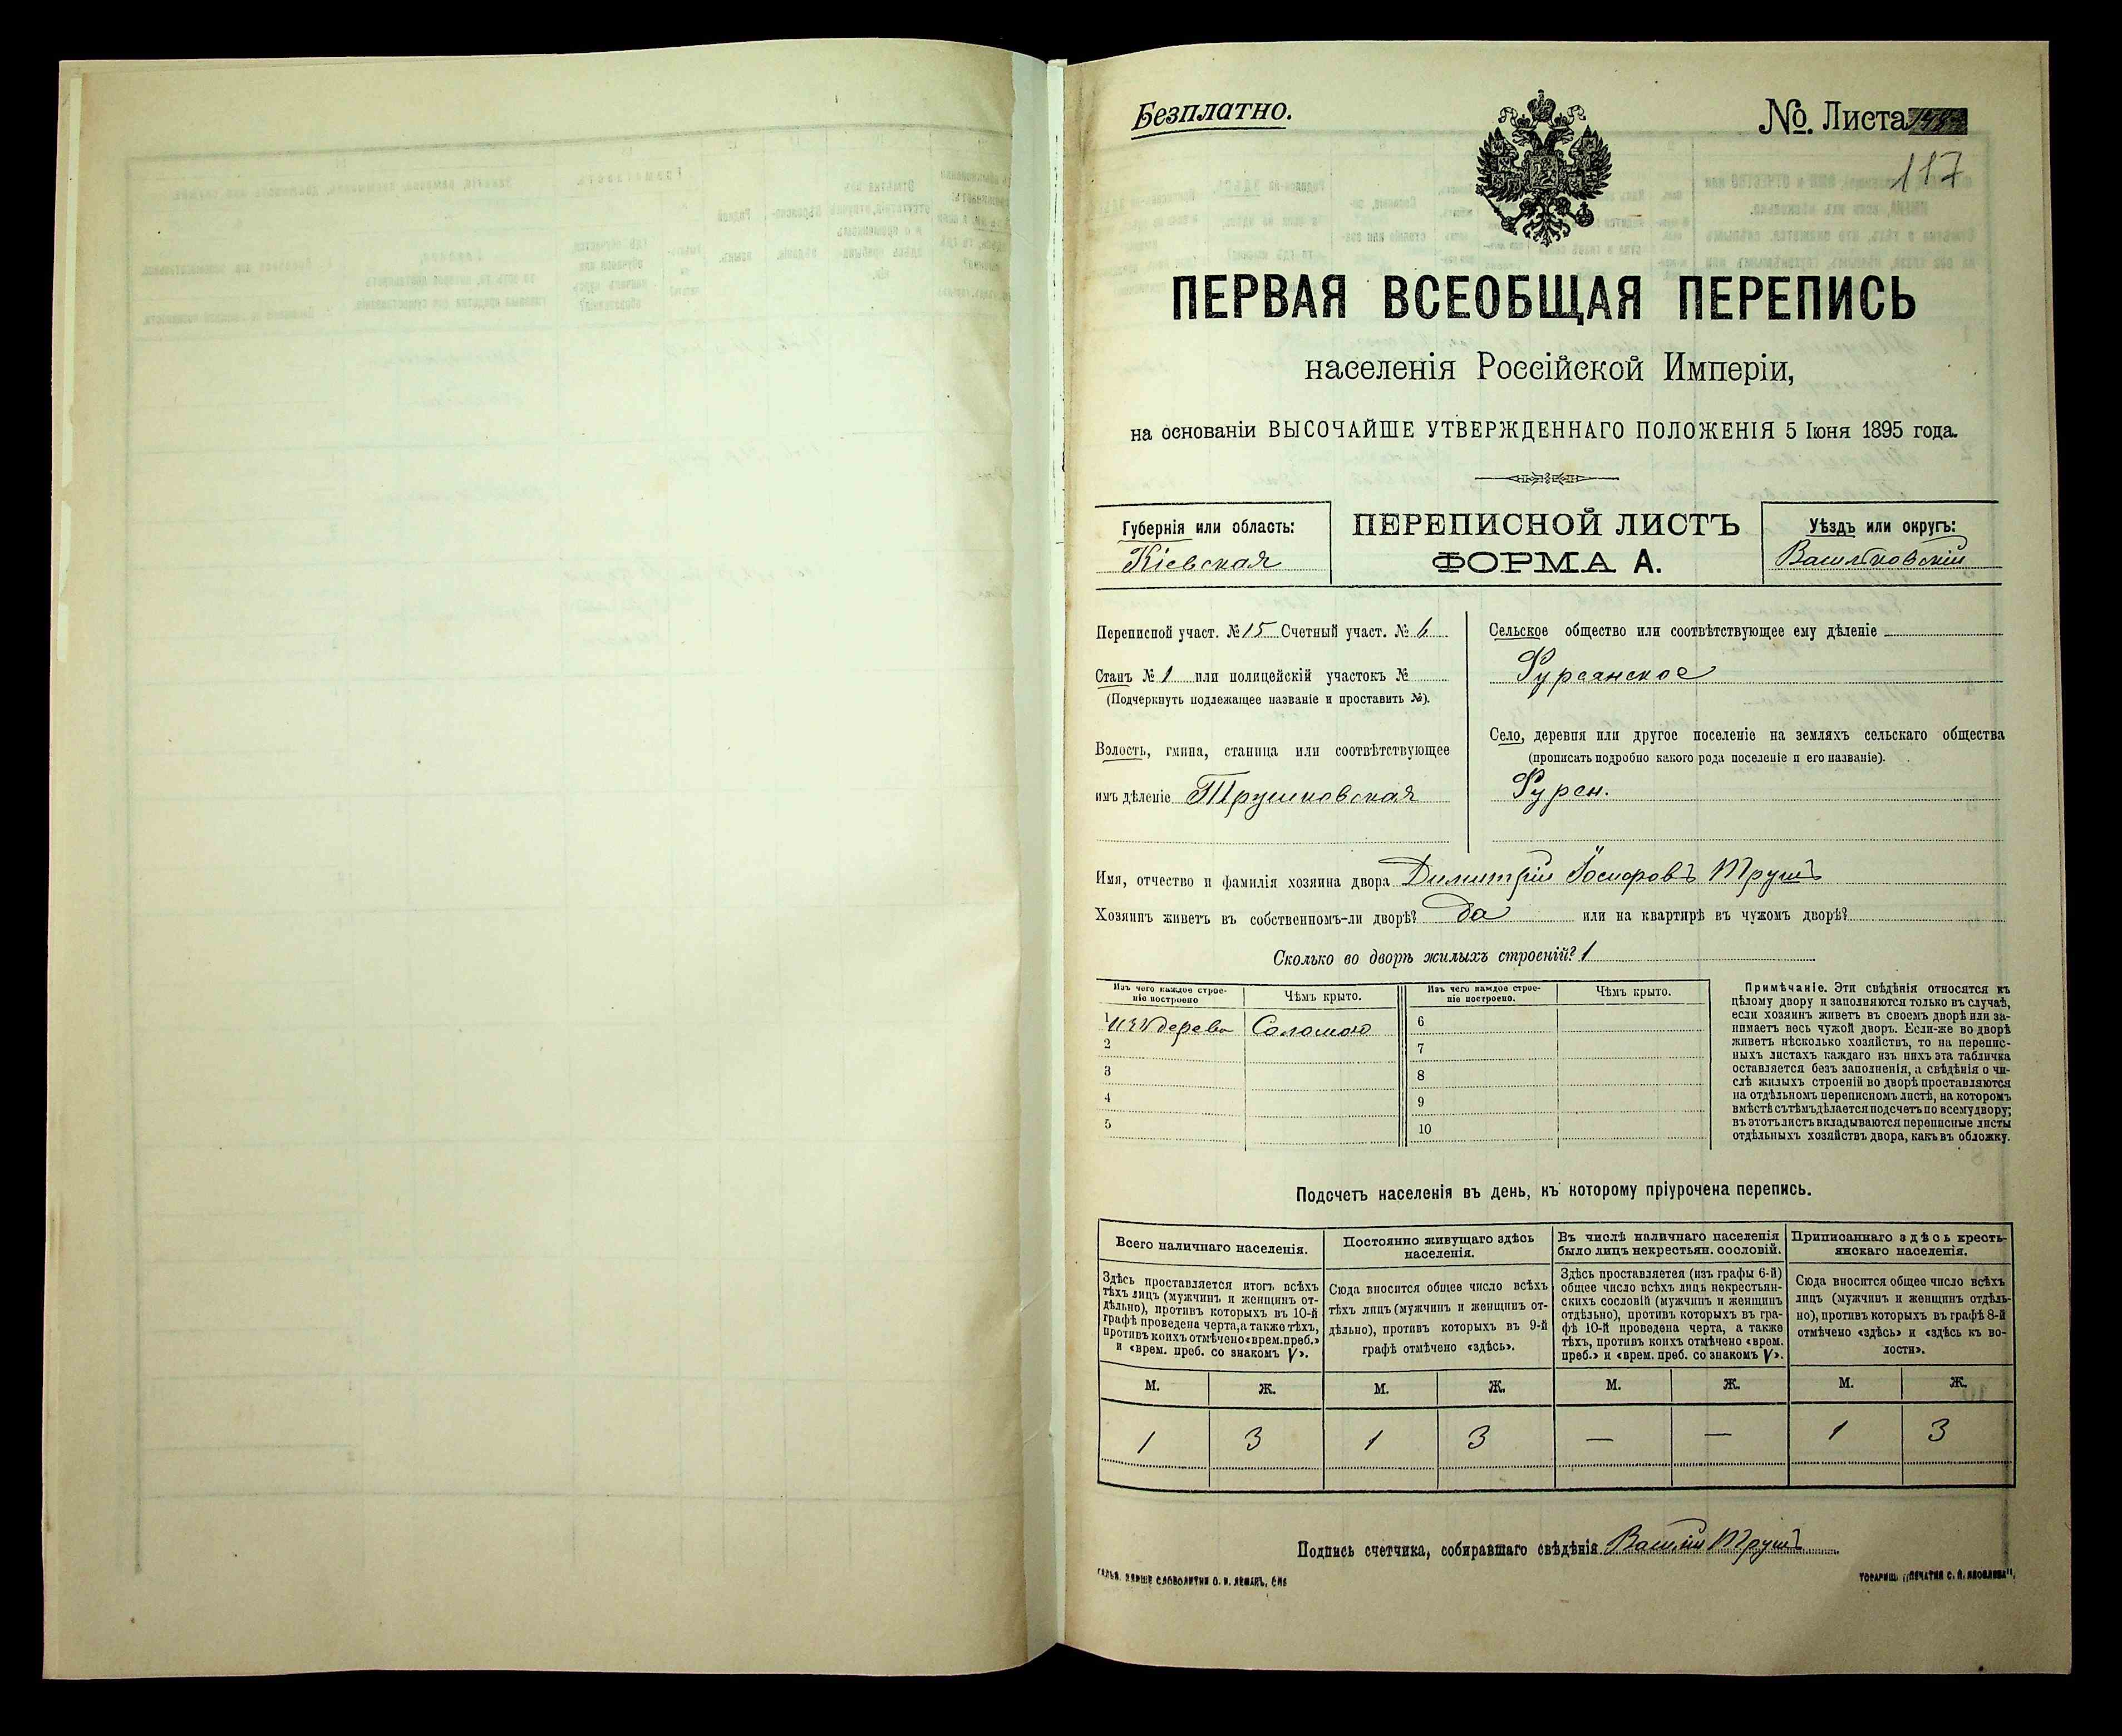 Безплатно.
№. Листа
117
ПЕРВАЯ ВСЕОБЩАЯ ПЕРЕПИСЬ
населенія Россійской Имперіи,
на основаніи ВЫСОЧАЙШЕ УТВЕРЖДЕННАГО ПОЛОЖЕНІЯ 5 Іюня 1895 года.
Губернія или область:
Кіевская
ПЕРЕПИСНОЙ ЛИСТЪ
ФОРМА А.
Уѣздъ или округъ:
Васильковскій
Переписной участ. № 15 Счетный участ. № 6
Станъ № 1 или полицейскій участокъ №
(Подчеркнуть подлежащее названіе и проставить №).
Волость, гмина, станица или соотвѣтствующее
имъ дѣленіе Трушковская
Сельское общество или соотвѣтствующее ему дѣленіе
Фурсянское
Село, деревня или другое поселеніе на земляхъ сельскаго общества
(прописать подробно какого рода поселеніе и его названіе).
Фурсы.
Имя, отчество и фамилія хозяина двора Димитрій Іосифовъ Трушъ
Хозяинъ живетъ въ собственномъ-ли дворѣ? да или на квартирѣ въ чужомъ дворѣ?
Сколько во дворѣ жилыхъ строеній? 1
Изъ чего каждое строе-
ніе построено
Чѣмъ крыто.
1 изъ дерева Соломою
2
3
4
5
Изъ чего каждое строе-
ніе построено.
Чѣмъ крыто.
6
7
8
9
10
Примѣчаніе. Эти свѣдѣнія относятся къ
цѣлому двору и заполняются только въ случаѣ,
если хозяинъ живетъ въ своемъ дворѣ или за-
нимаетъ весь чужой дворъ. Если-же во дворѣ
живетъ нѣсколько хозяйствъ, то на перепис-
ныхъ листахъ каждаго изъ нихъ эта табличка
оставляется безъ заполненія, а свѣдѣнія о чи-
слѣ жилыхъ строеній во дворѣ проставляются
на отдѣльномъ переписномъ листѣ, на которомъ
вмѣстѣ съ тѣмъ дѣлается подсчетъ по всему двору;
въ этотъ листъ вкладываются переписные листы
отдѣльныхъ хозяйствъ двора, какъ въ обложку.
Подсчетъ населенія въ день, къ которому пріурочена перепись.
Всего наличнаго населенія.
Здѣсь проставляется итогъ всѣхъ
тѣхъ лицъ (мужчинъ и женщинъ от-
дѣльно), противъ которыхъ въ 10-й
графѣ проведена черта, а также тѣхъ,
противъ коихъ отмѣчено «врем. преб.»
и «врем. преб. со знакомъ V».
Постоянно живущаго здѣсь
населенія.
Сюда вносится общее число всѣхъ
тѣхъ лицъ (мужчинъ и женщинъ от-
дѣльно), противъ которыхъ въ 9-й
графѣ отмѣчено «здѣсь».
Въ числѣ наличнаго населенія
было лицъ некрестьян. сословій.
Здѣсь проставляется (изъ графы 6-й)
общее число всѣхъ лицъ некрестьян-
скихъ сословій (мужчинъ и женщинъ
отдѣльно), противъ которыхъ въ гра-
фѣ 10-й проведена черта, а также
тѣхъ, противъ коихъ отмѣчено «врем.
преб.» и «врем. преб. со знакомъ V».
Приписаннаго здѣсь кресть-
янскаго населенія.
Сюда вносится общее число всѣхъ
лицъ (мужчинъ и женщинъ отдѣль-
но), противъ которыхъ въ графѣ 8-й
отмѣчено «здѣсь» и «здѣсь къ во-
лости».
М. Ж. М. Ж. М. Ж. М. Ж.
1 3 1 3 — — 1 3
Подпись счетчика, собиравшаго свѣдѣнія Василій Трушъ
СЛОВОЛИТНИ О. И. ЛЕМАНЪ, СПБ
ТОВАРИЩ. „ПЕЧАТНЯ С. П. ЯКОВЛЕВА“.